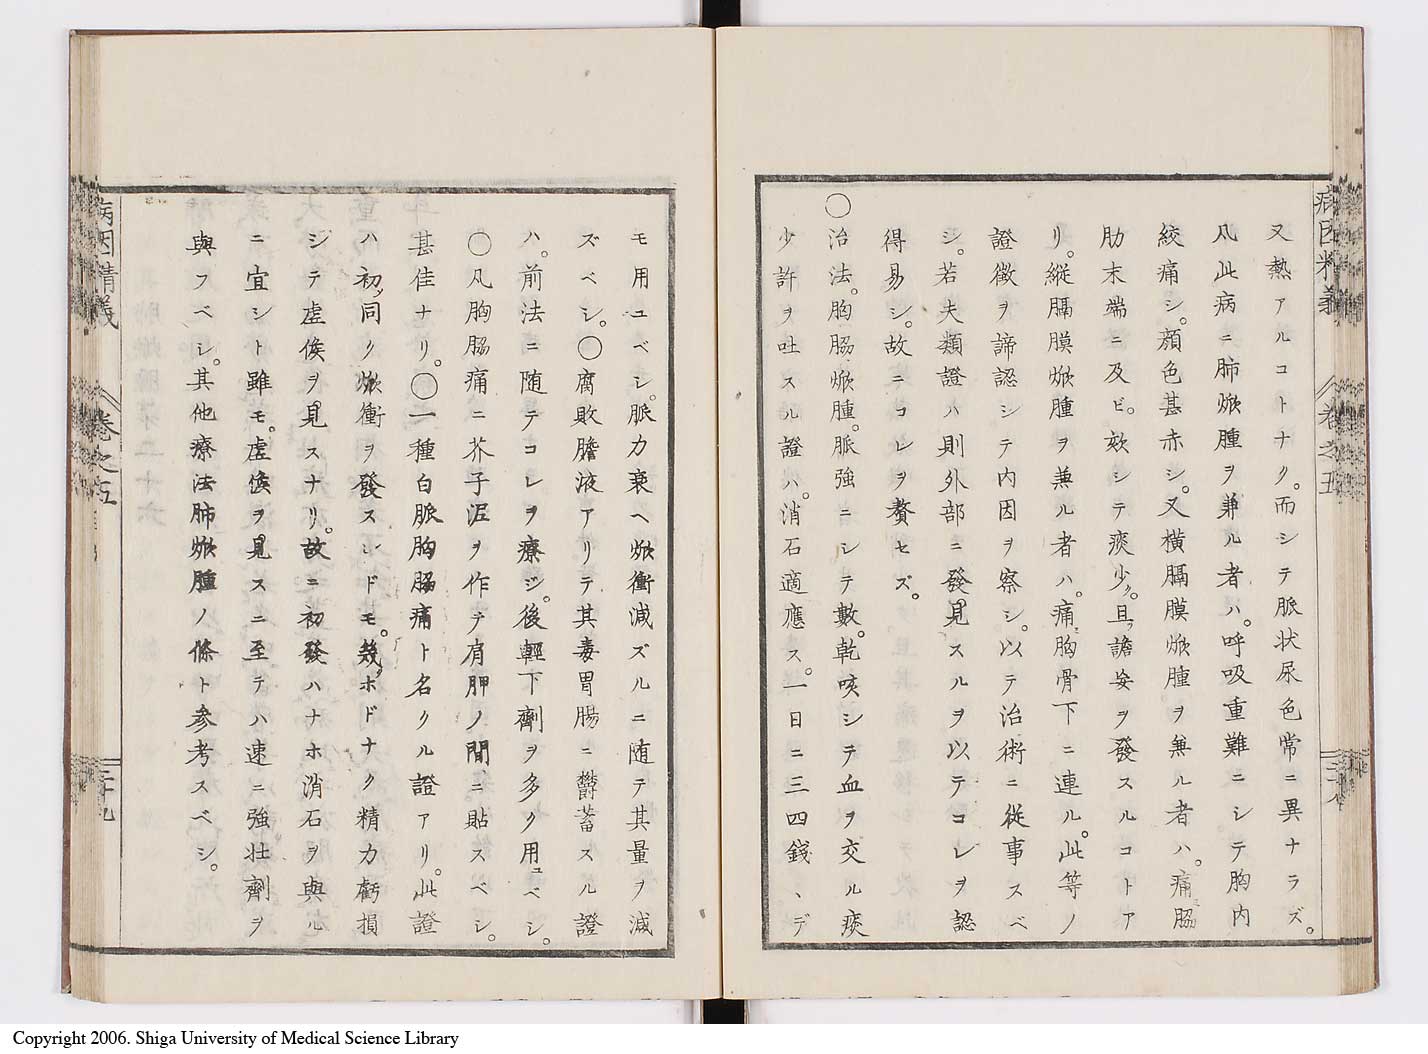 病因精義
卷之五
二十八
又熱アルコトナク。而シテ脈状尿色常ニ異ナラズ。
凡此病ニ肺焮腫ヲ兼ル者ハ。呼吸重難ニシテ胸内
絞痛シ。顔色甚赤シ。又横膈膜焮腫ヲ兼ル者ハ。痛脇
肋末端ニ及ビ。欬シテ痰少ク。且ツ譫妄ヲ發スルコトア
リ。縦膈膜焮腫ヲ兼ル者ハ。痛胸骨下ニ連ル。此等ノ
證徴ヲ諦認シテ内因ヲ察シ。以テ治術ニ従事スベ
シ。若夫類證ハ則外部ニ發見スルヲ以テコレヲ認
得易シ。故ニコレヲ贅セズ。
〇治法。胸脇焮腫。脈強ニシテ數。乾咳シテ血ヲ交ル痰
少許ヲ吐スル證ハ。消石適應ス。一日ニ三四錢、デ
モ用ユベシ。脈力衰ヘ焮衝減ズルニ随テ其量ヲ減
ズベシ。〇腐敗膽液アリテ其毒胃腸ニ欝蓄スル證
ハ。前法ニ随テコレヲ療ジ。後輕下劑ヲ多ク用ユベシ。
〇凡胸脇痛ニ芥子泥ヲ作テ肩胛ノ間ニ貼スベシ。
甚佳ナリ。〇一種白脈胸脇痛ト名クル證アリ。此證
ハ初メ同ク焮衝ヲ發スレドモ。幾ホドナク精力虧損
シテ虚候ヲ見スナリ。故ニ初發ハナホ消石ヲ與ル
ニ宜シト雖モ。虚候ヲ見スニ至テハ速ニ強壮劑ヲ
與フベシ。其他療法肺焮腫ノ條ト参考スベシ。
病因精義
卷之五
二十九
Copyright 2006. Shiga University of Medical Science Library